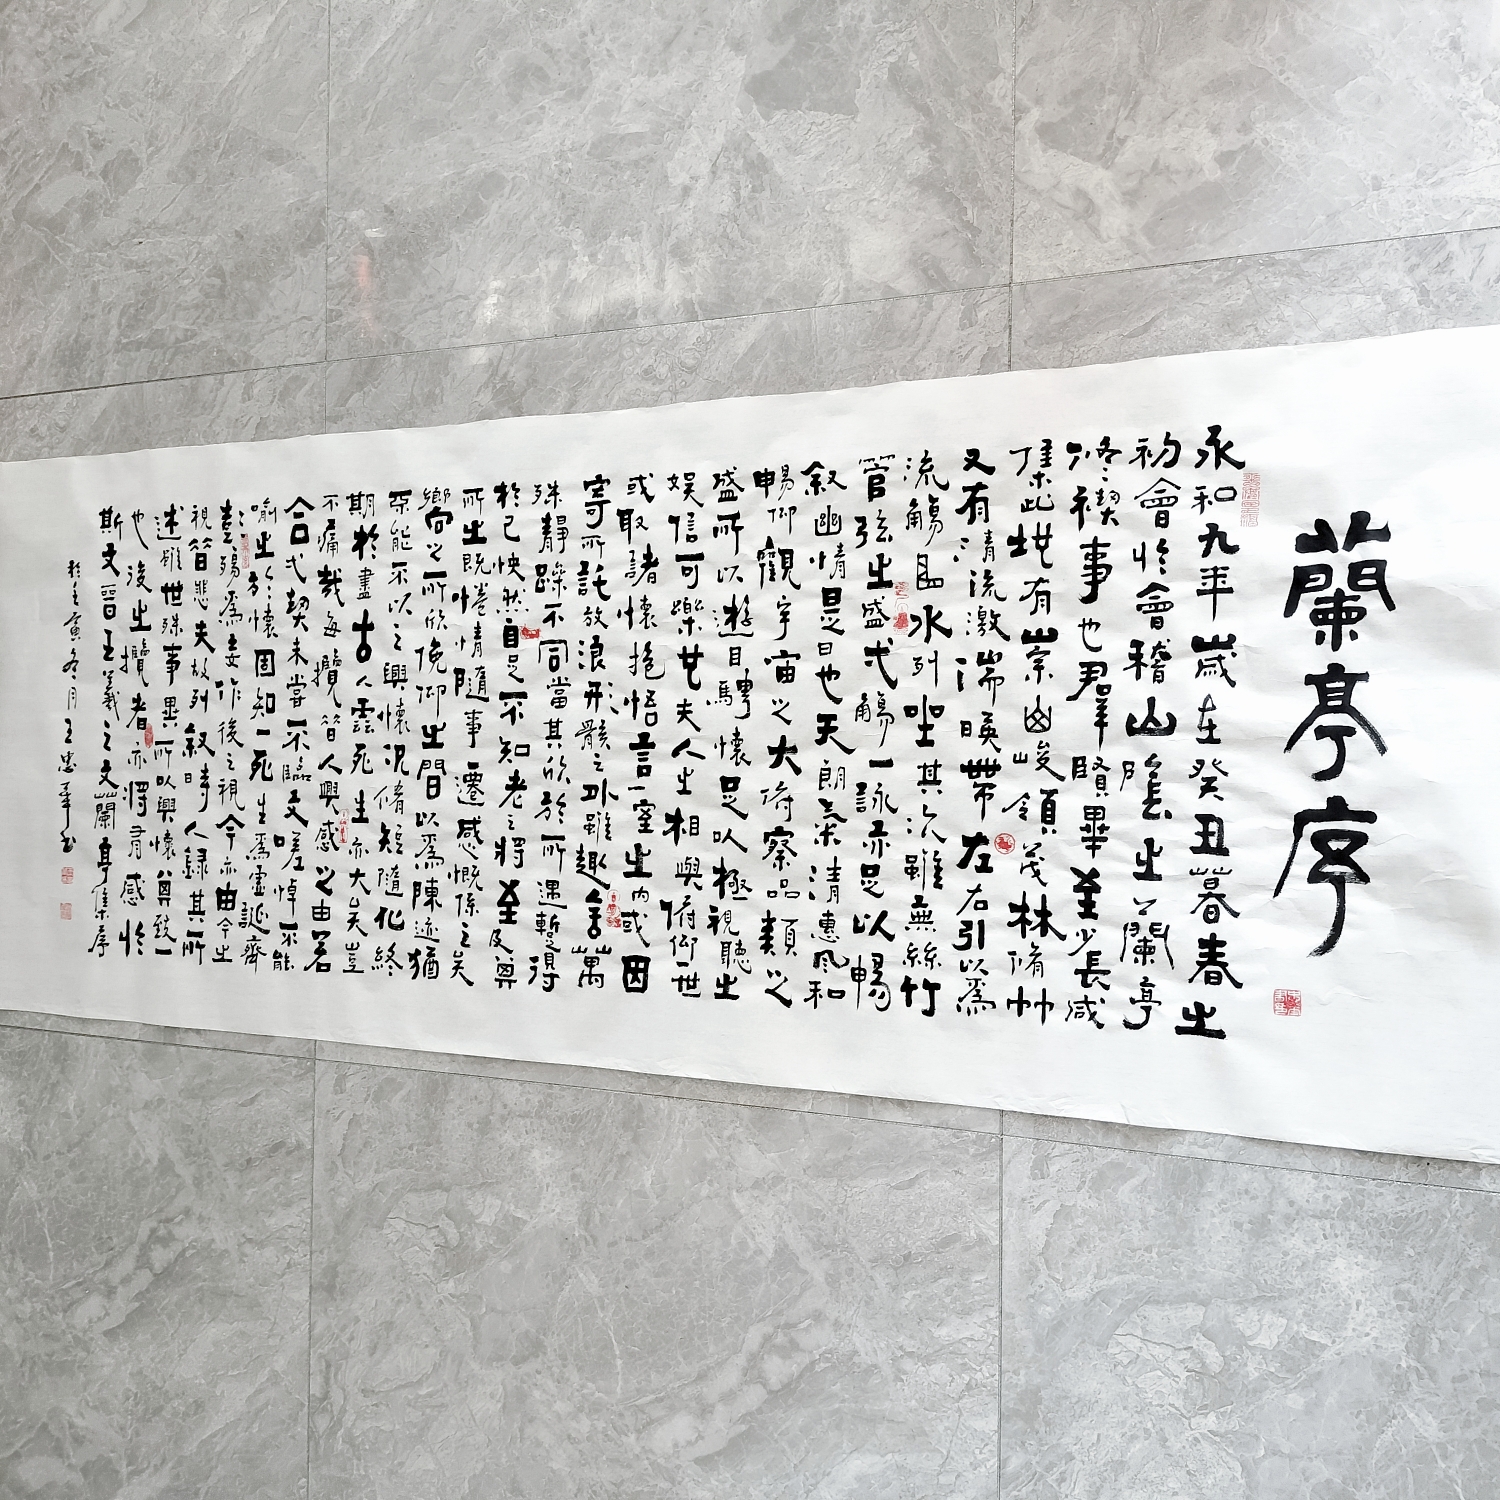 蘭亭序
永和九年歲在癸丑暮春之
初會於會稽山陰之蘭亭
修禊事也群賢畢至少長咸
集此地有崇山峻領茂林脩竹
又有清流激湍映帶左右引以為
流觴曲水列坐其次雖無絲竹
管弦之盛一觴一詠亦足以暢
敘幽情是日也天朗氣清惠風和
暢仰觀宇宙之大俯察品類之
盛所以遊目騁懷足以極視聽之
娛信可樂也夫人之相與俯仰一世
或取諸懷抱悟言一室之內或因
寄所託放浪形骸之外雖趣舍萬
殊靜躁不同當其欣於所遇暫得
於己快然自足不知老之將至及其
所之既惓情隨事遷感慨係之矣
嚮之所欣俛仰之間以為陳迹猶
不能不以之興懷況脩短隨化終
期於盡古人云死生亦大矣豈
不痛哉每攬昔人興感之由若
合一契未嘗不臨文嗟悼不能
喻之於懷固知一死生為虛誕齊
彭殤為妄作後之視今亦由今之
視昔悲夫故列敘時人錄其所
述雖世殊事異所以興懷其致一
也後之攬者亦將有感於
斯文晉王羲之文蘭亭集序
於壬寅冬月王忠華書